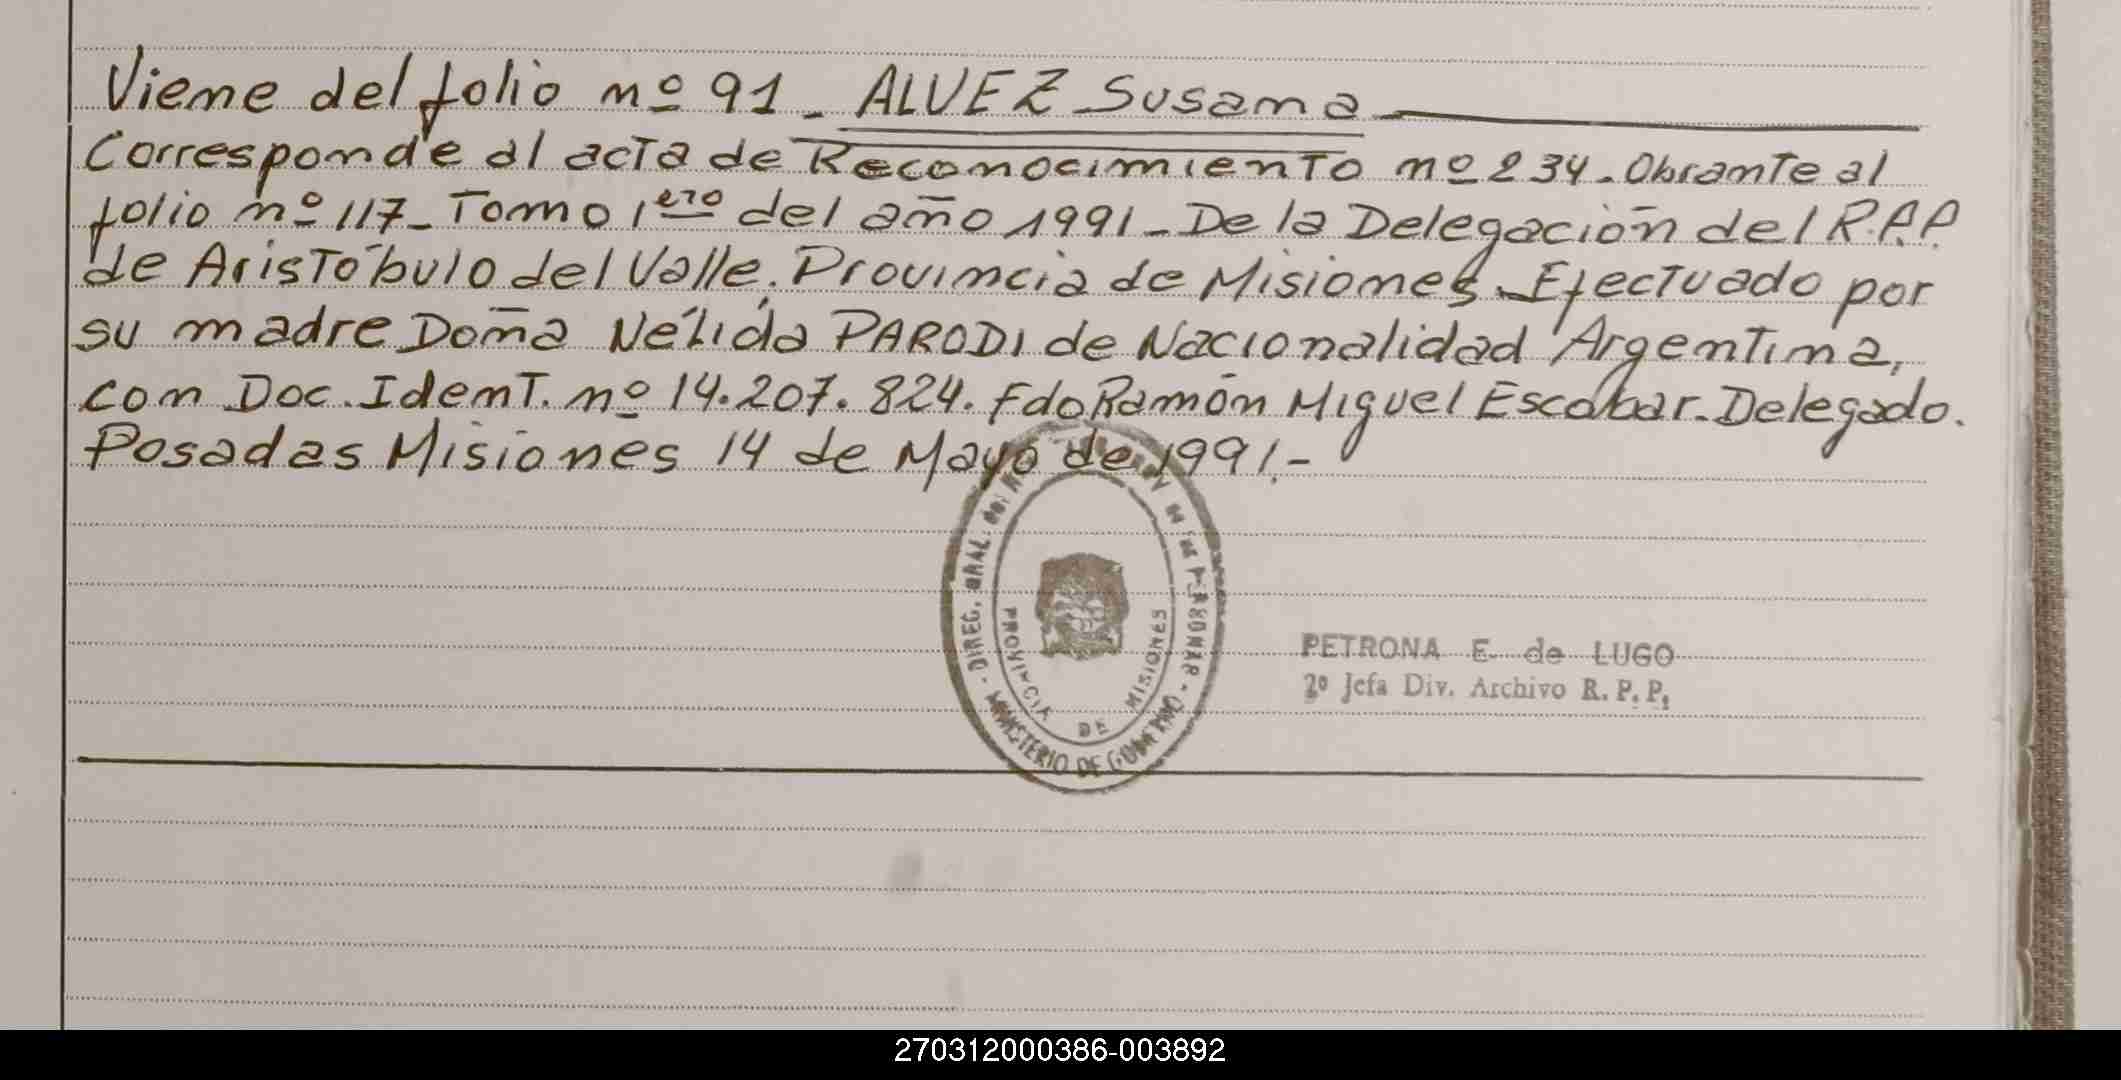 Viene del folio nº 91 - ALVEZ Susana
Corresponde al acta de Reconocimiento nº 234. Obrante al
folio nº 117 - Tomo 1ero del año 1991 - De la Delegación del R.P.P.
de Aristóbulo del Valle, Provincia de Misiones. Efectuado por
su madre Doña Nélida PARODI de Nacionalidad Argentina,
con Doc. Ident. nº 14.207.824. Fdo Ramón Miguel Escobar. Delegado.
Posadas Misiones 14 de Mayo de 1991.-
DIREC. GRAL. DEL
DE LAS PERSONAS
MINISTERIO DE GOBIERNO
PROVINCIA DE MISIONES
PETRONA E. de LUGO
2º Jefa Div. Archivo R. P. P.
270312000386-003892